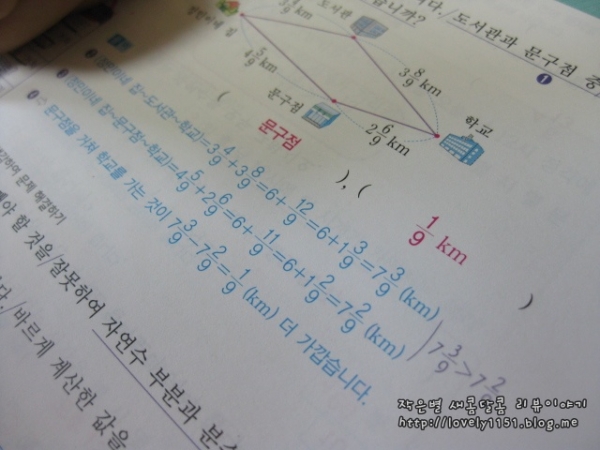 니다. 도서관과 문구점 중
습니까?
도서관
km
3 8/9 km
4 5/9 km
문구점
2 6/9 km
학교
( 문구점 ), ( 1/9 km )
집~도서관~학교)=3 4/9+3 8/9=6+12/9=6+1 3/9=7 3/9 (km)
집~문구점~학교)=4 5/9+2 6/9=6+11/9=6+1 2/9=7 2/9 (km)
7 3/9>7 2/9
문구점을 거쳐 학교를 가는 것이 7 3/9-7 2/9=1/9 (km) 더 가깝습니다.
문제 해결하기
해야 할 것을 잘못하여 자연수 부분과 분수
다. 바르게 계산한 값을
작은별 새콤달콤 리뷰이야기
http://lovely1151.blog.me